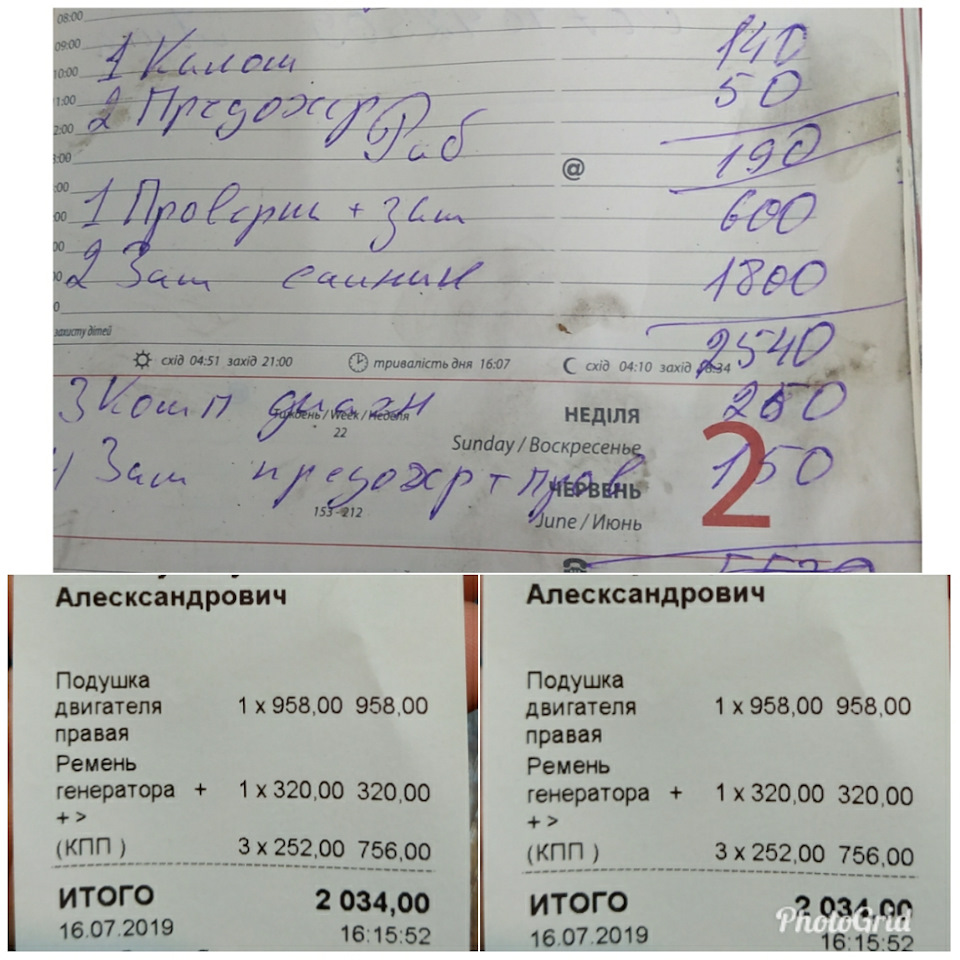 08:00
09:00
1 Калош 140
10:00
2 Предохр 50
Раб
190
@
1 Проверки + зам 600
2 Зам 1800
захисту дітей
2540
схід 04:51 захід 21:00 тривалість дня 16:07 схід 04:10 захід 18:34
3 Комп диагн 250
Тиждень / Week / Неделя
22
НЕДІЛЯ
Sunday / Воскресенье
4 Зам предохр + пров 150
ЧЕРВЕНЬ 2
153 - 212
June / Июнь
Алесксандрович
Подушка
двигателя 1 x 958,00 958,00
правая
Ремень
генератора + 1 x 320,00 320,00
+ >
(КПП ) 3 x 252,00 756,00
ИТОГО 2 034,00
16.07.2019 16:15:52
Алесксандрович
Подушка
двигателя 1 x 958,00 958,00
правая
Ремень
генератора + 1 x 320,00 320,00
+ >
(КПП ) 3 x 252,00 756,00
ИТОГО 2 034,00
PhotoGrid
16.07.2019 16:15:52